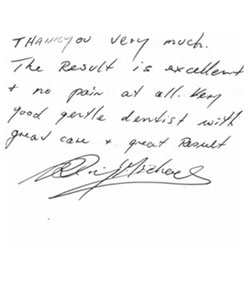 THANKYOU very much.
The Result is excellent
+ no pain at all. Very
good gentle dentist with
great care + great Result